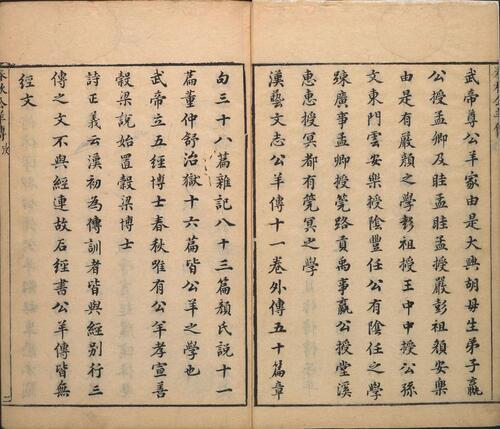 武帝尊公羊家由是大興胡母生弟子嬴
公授孟卿及眭孟眭孟授嚴彭祖顏安樂
由是有嚴顏之學彭祖授王中中授公孫
文東門雲安樂授陰豐任公有陰任之學
疎廣事孟卿授筦路貢禹事嬴公授堂溪
惠惠授冥都有筦冥之學
漢藝文志公羊傳十一卷外傳五十篇章
句三十八篇雜記八十三篇顏氏說十一
篇董仲舒治獄十六篇皆公羊之學也
武帝立五經博士春秋雖有公羊孝宣善
穀梁說始置穀梁博士
詩正義云漢初為傳訓者皆與經別行三
傳之文不與經連故石經書公羊傳皆無
經文
春秋公羊傳攷
二